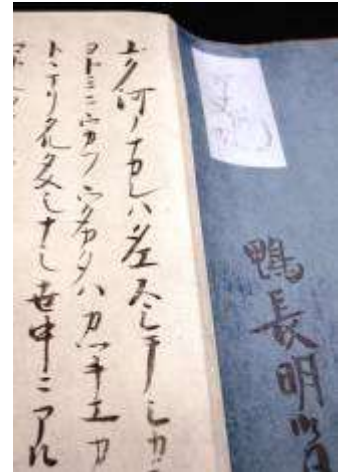 鴨長明
ユク河ノナカレハタエスシテシカ
ヨトミニウカフウタカタハカツキエカ
トヽマリタルタメシナシ世中ニアル